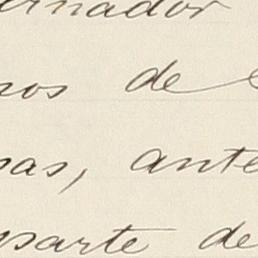 ernador
nos de
sas, ante
parte de